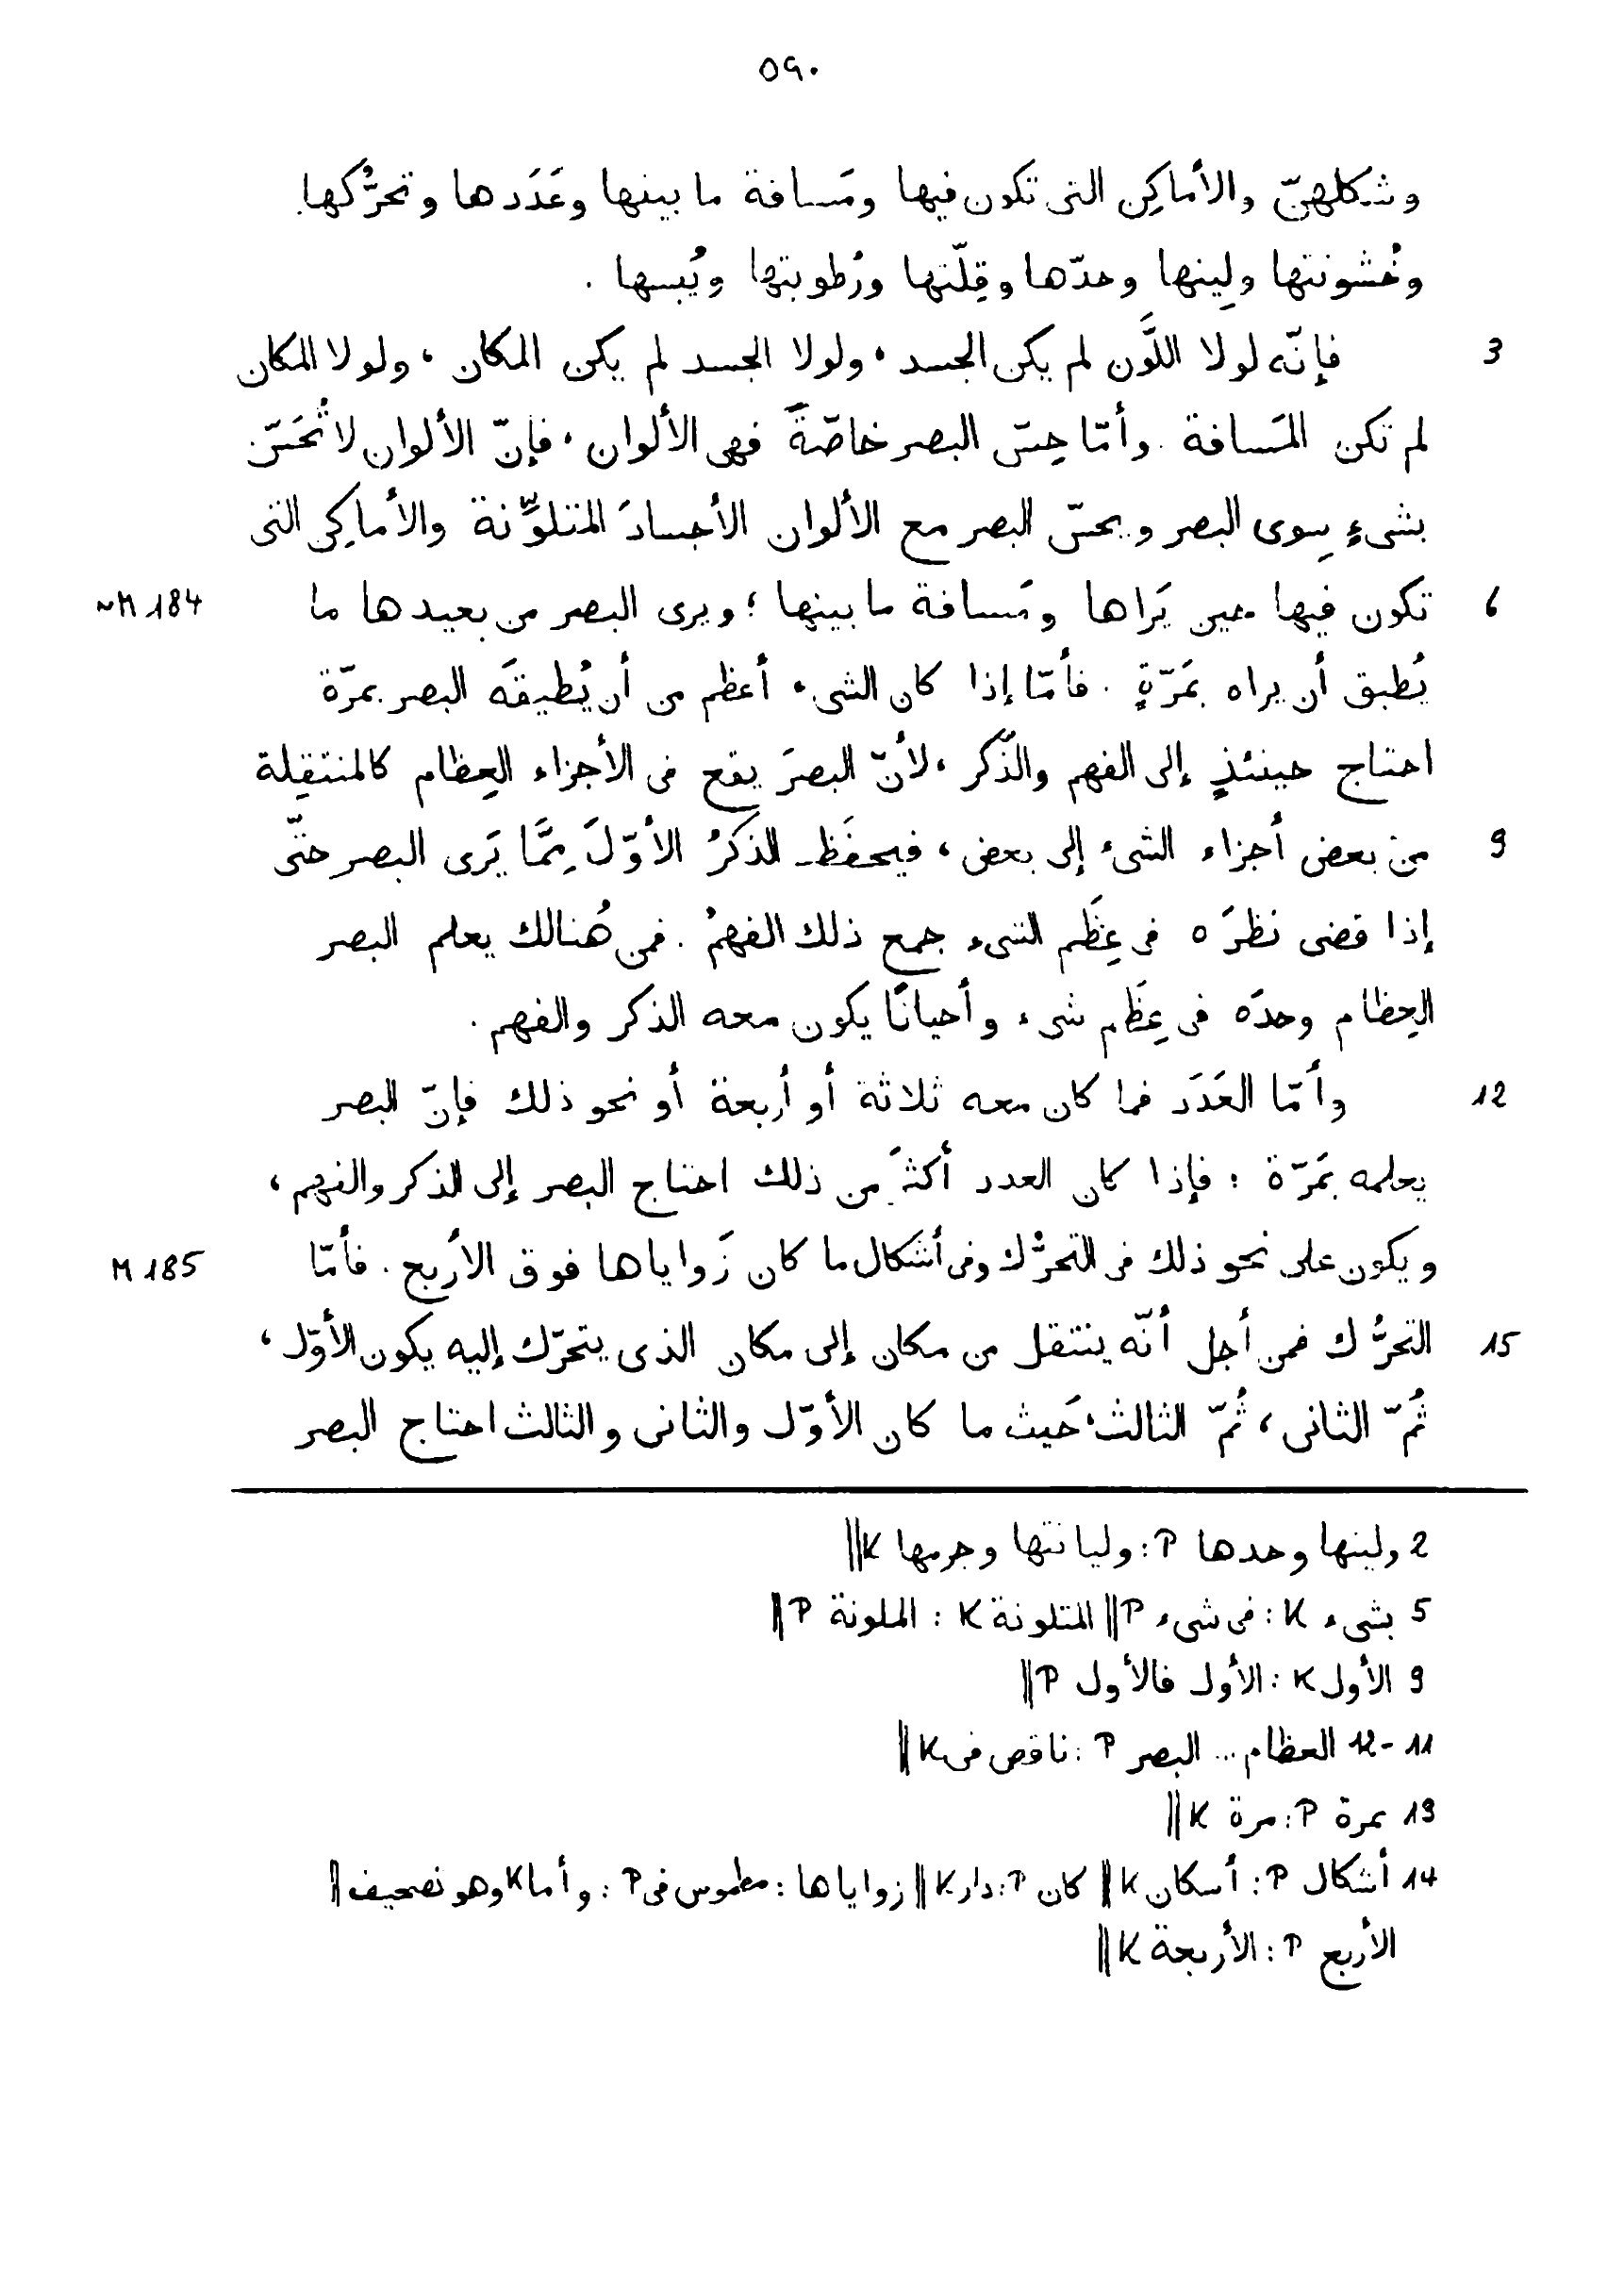 ٥٩٠
وشكلهنّ والأماكِن التى تكون فيها ومَسافة ما بينها وعَدَدها وتحرُّكها
وخُشونتها ولِينها وحدّها وقِلّتها ورُطوبتها ويُبسها .
3 فإنّه لولا اللَّون لم يكن الجسد، ولولا الجسد لم يكن المكان، ولولا المكان
لم تكن المَسافة . وأمّا حِسّ البصر خاصّةً فهى الألوان، فإنّ الألوان لا تُحَسّ
بشىءٍ سِوى البصر ويحسّ البصر مع الألوان الأجسادَ المتلوِّنة والأماكِن التى
6 تكون فيها حين يَراها ومَسافة ما بينها ؛ ويرى البصر من بعيدها ما ~M 184
يُطيق أن يراه بمَرّةٍ . فأمّا إذا كان الشىء أعظم من أن يُطيقَه البصر بمرّة
احتاج حينئذٍ إلى الفهم والذِّكر، لأنّ البصرَ يقع فى الأجزاء العِظام كالمنتقِلة
9 من بعض أجزاء الشىء إلى بعض، فيحفَظ الذكرُ الأوّلَ مِمَّا يَرى البصر حتّى
إذا قضى نظرَه فى عِظَم الشىء جمع ذلك الفهمُ . فمن هُنالك يعلم البصر
العِظام وحدَه فى عِظَم شىء وأحيانًا يكون معه الذكر والفهم .
12 وأمّا العَدَد فما كان معه ثلاثة أو أربعة أو نحو ذلك فإنّ البصر
يعلمه بمَرّة ؛ فإذا كان العدد أكثرَ من ذلك احتاج البصر إلى الذكر والفهم،
ويكون على نحو ذلك فى التحرُّك وفى أشكال ما كان زَواياها فوق الأربع . فأمّا M 185
15 التحرُّك فمن أجل أنّه ينتقل من مكان إلى مكان الذى يتحرّك إليه يكون الأوّل،
ثُمّ الثانى، ثُمّ الثالث؛ حَيث ما كان الأوّل والثانى والثالث احتاج البصر
2 ولينها وحدها P : وليانتها وجرمها K ||
5 بشىء K : فى شىء P || المتلونة K : الملونة P ||
9 الأول K : الأول فالأول P ||
11-12 العظام … البصر P : ناقص فى K ||
13 بمرة P : مرة K ||
14 أشكال P : أسكان K || كان P : دار K || زواياها : مطموس فى P : وأما K وهو تصحيف ||
الأربع P : الأربعة K ||